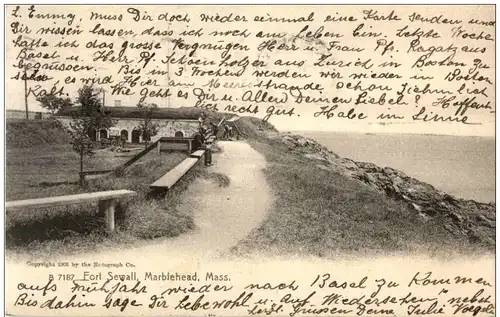 L. Emmy, muss Dir doch wieder einmal eine Karte senden und
Dir wissen lassen, dass ich noch am Leben bin. Letzte Woche
hatte ich das grosse Vergnügen Herr u. Frau Pf. Ragatz aus
Basel u. Herr Pf. Schoenholzer aus Zurich in Boston zu
begrussen. Bis in 3 Wochen werden wir wieder in Boston
sein, es wird hier am Meeresstrande, schon ziehmlich
kalt. Wie geht es Dir u. Allen Deinen Liebe? Hoffent.
recht gut. Habe im Sinne
Copyright 1905 by the Rotograph Co.
B 7187 Fort Sewall, Marblehead, Mass.
aufs Frühjahr wieder nach Basel zu Kommen
Bis dahin sage Dir Lebewohl u. Auf Wiedersehen nebst
herzl. Grüssen Deine Julie Voegeli